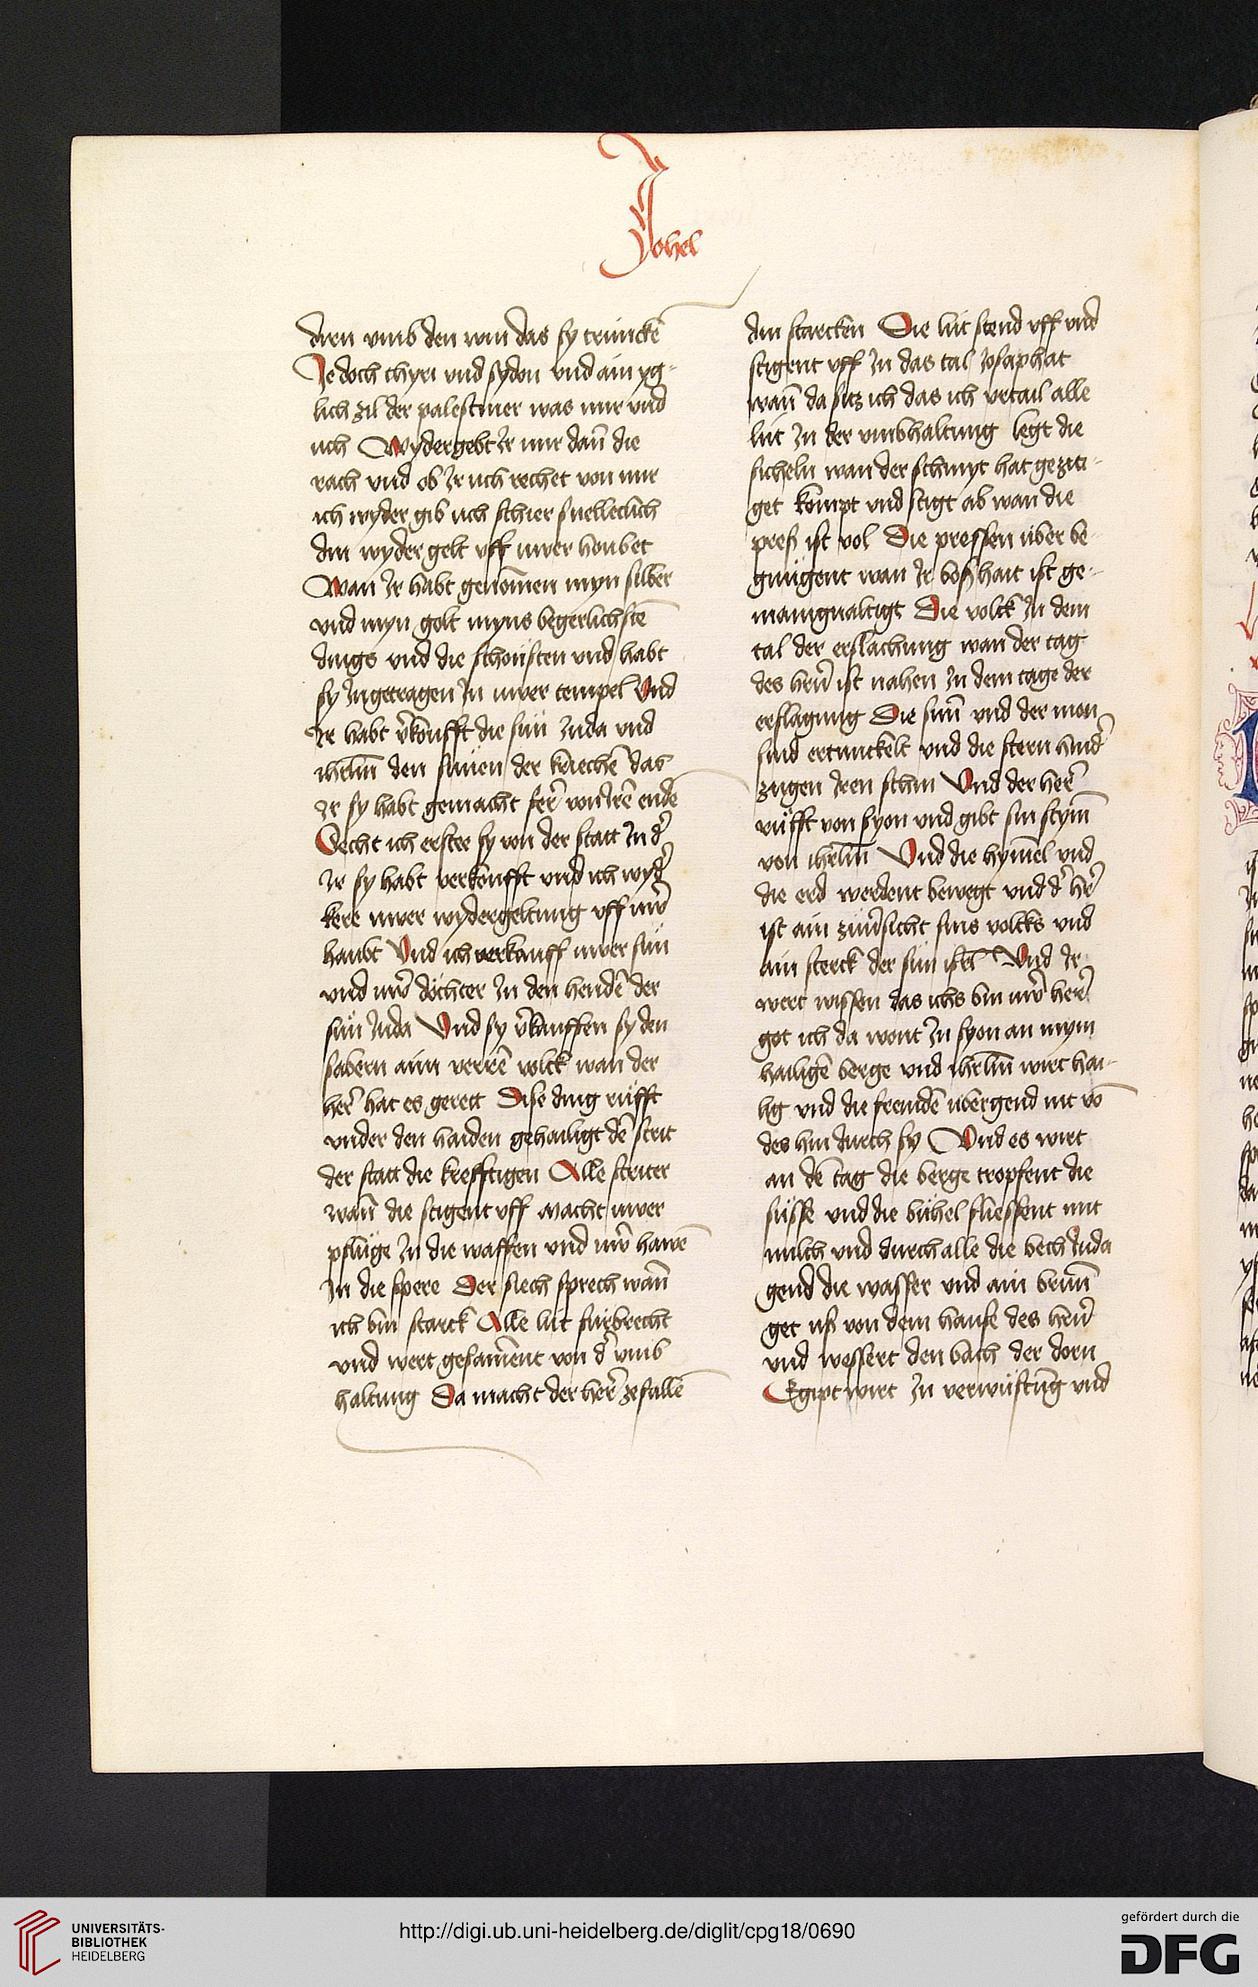 Johel
dien vmb den win das sy trüncke͂
Je doch thyri vnd sydon vnd ain yg-
lich zil der palestiner was mir vnd
üch Wydergebt ir mir dan̄ die
rach vnd ob ir üch rechet von mir
ich wyder gib üch schier snelleclich
din wyder gelt vff iuwer houbet
Wan ir habt genomen myn silber
vnd myn golt myns begerlichste͂
dings vnd die schönsten vnd habt
sy ingetragen in iuwer tempel Vnd
ir habt v̓koufft die sün iuda vnd
ihrlm̄ den sünen der kriechē das
ir sy habt gemacht fer̓ von irē ende
Secht ich erster sy von der statt in d̓
ir sy habt verkoufft vnd ich wyd̓
kere iuwer wydergeltung vff iuw̓
haubt Vnd ich verkauff iuwer sün
vnd iuw̓ döchter in den hendē der
sün iuda Vnd sy v̓kauffen sy den
sabern aim verrē volck wan der
her̓ hat es gerett Dise ding rüfft
vnder den haiden gehailigt dē strit
der statt die krefftigen Alle striter
wan̄ die stigent vff macht iuwer
pflüge in die waffen vnd iuw̓ hawē
in die spere Der siech sprech wan̄
ich bin starck Alle lüt fürbrecht
vnd wert gesament von d̓ vmb
haltung Da macht der her̓ zefallē
din starcken Die lüt stend vff vnd
stigent vff in das tal iosaphat
wan̄ da sitz ich das ich vrtail alle
lüt in der vmbhaltung legt die
sicheln wan der schnyt hat geziti-
get kompt vnd stigt ab wan die
preß ist vol Die pressen über be-
gnügent wan ir boßhait ist ge-
manigualtigt Die volck in dem
tal der erslachung wan der tag
des her̄n ist nahen in dem tage der
erslagung Die sun̄ vnd der mon
sind ertunckelt vnd die stern hind̓
zugen iren schin Vnd der her̓
rüfft von syon vnd gibt sin stym̄
von ihrlm̄ Vnd die hymel vnd
die erd werdent bewegt vnd d̓ her̓
ist ain zuu̓sicht sins volcks vnd
ain sterck der sün isrl̄ Vnd ir
wert wissen das ichs bin iuw̓ her̓
got ich da wont in syon an mym
hailigē berge vnd ihrlm̄ wirt hai-
lig vnd die fremdē übergend nit vō
des hin durch sy Vnd es wirt
an dē tag die berge tropfent die
süsse vnd die bühel fliessent mit
milch vnd durch alle die bech iuda
gend die wasser vnd ain brun̄
get uß von dem hause des her̄n
vnd wessert den bach der dorn
Egipt wirt in verwüstūg vnd
UNIVERSITÄTS-
BIBLIOTHEK
HEIDELBERG
http://digi.ub.uni-heidelberg.de/diglit/cpg18/0690
gefördert durch die
DFG